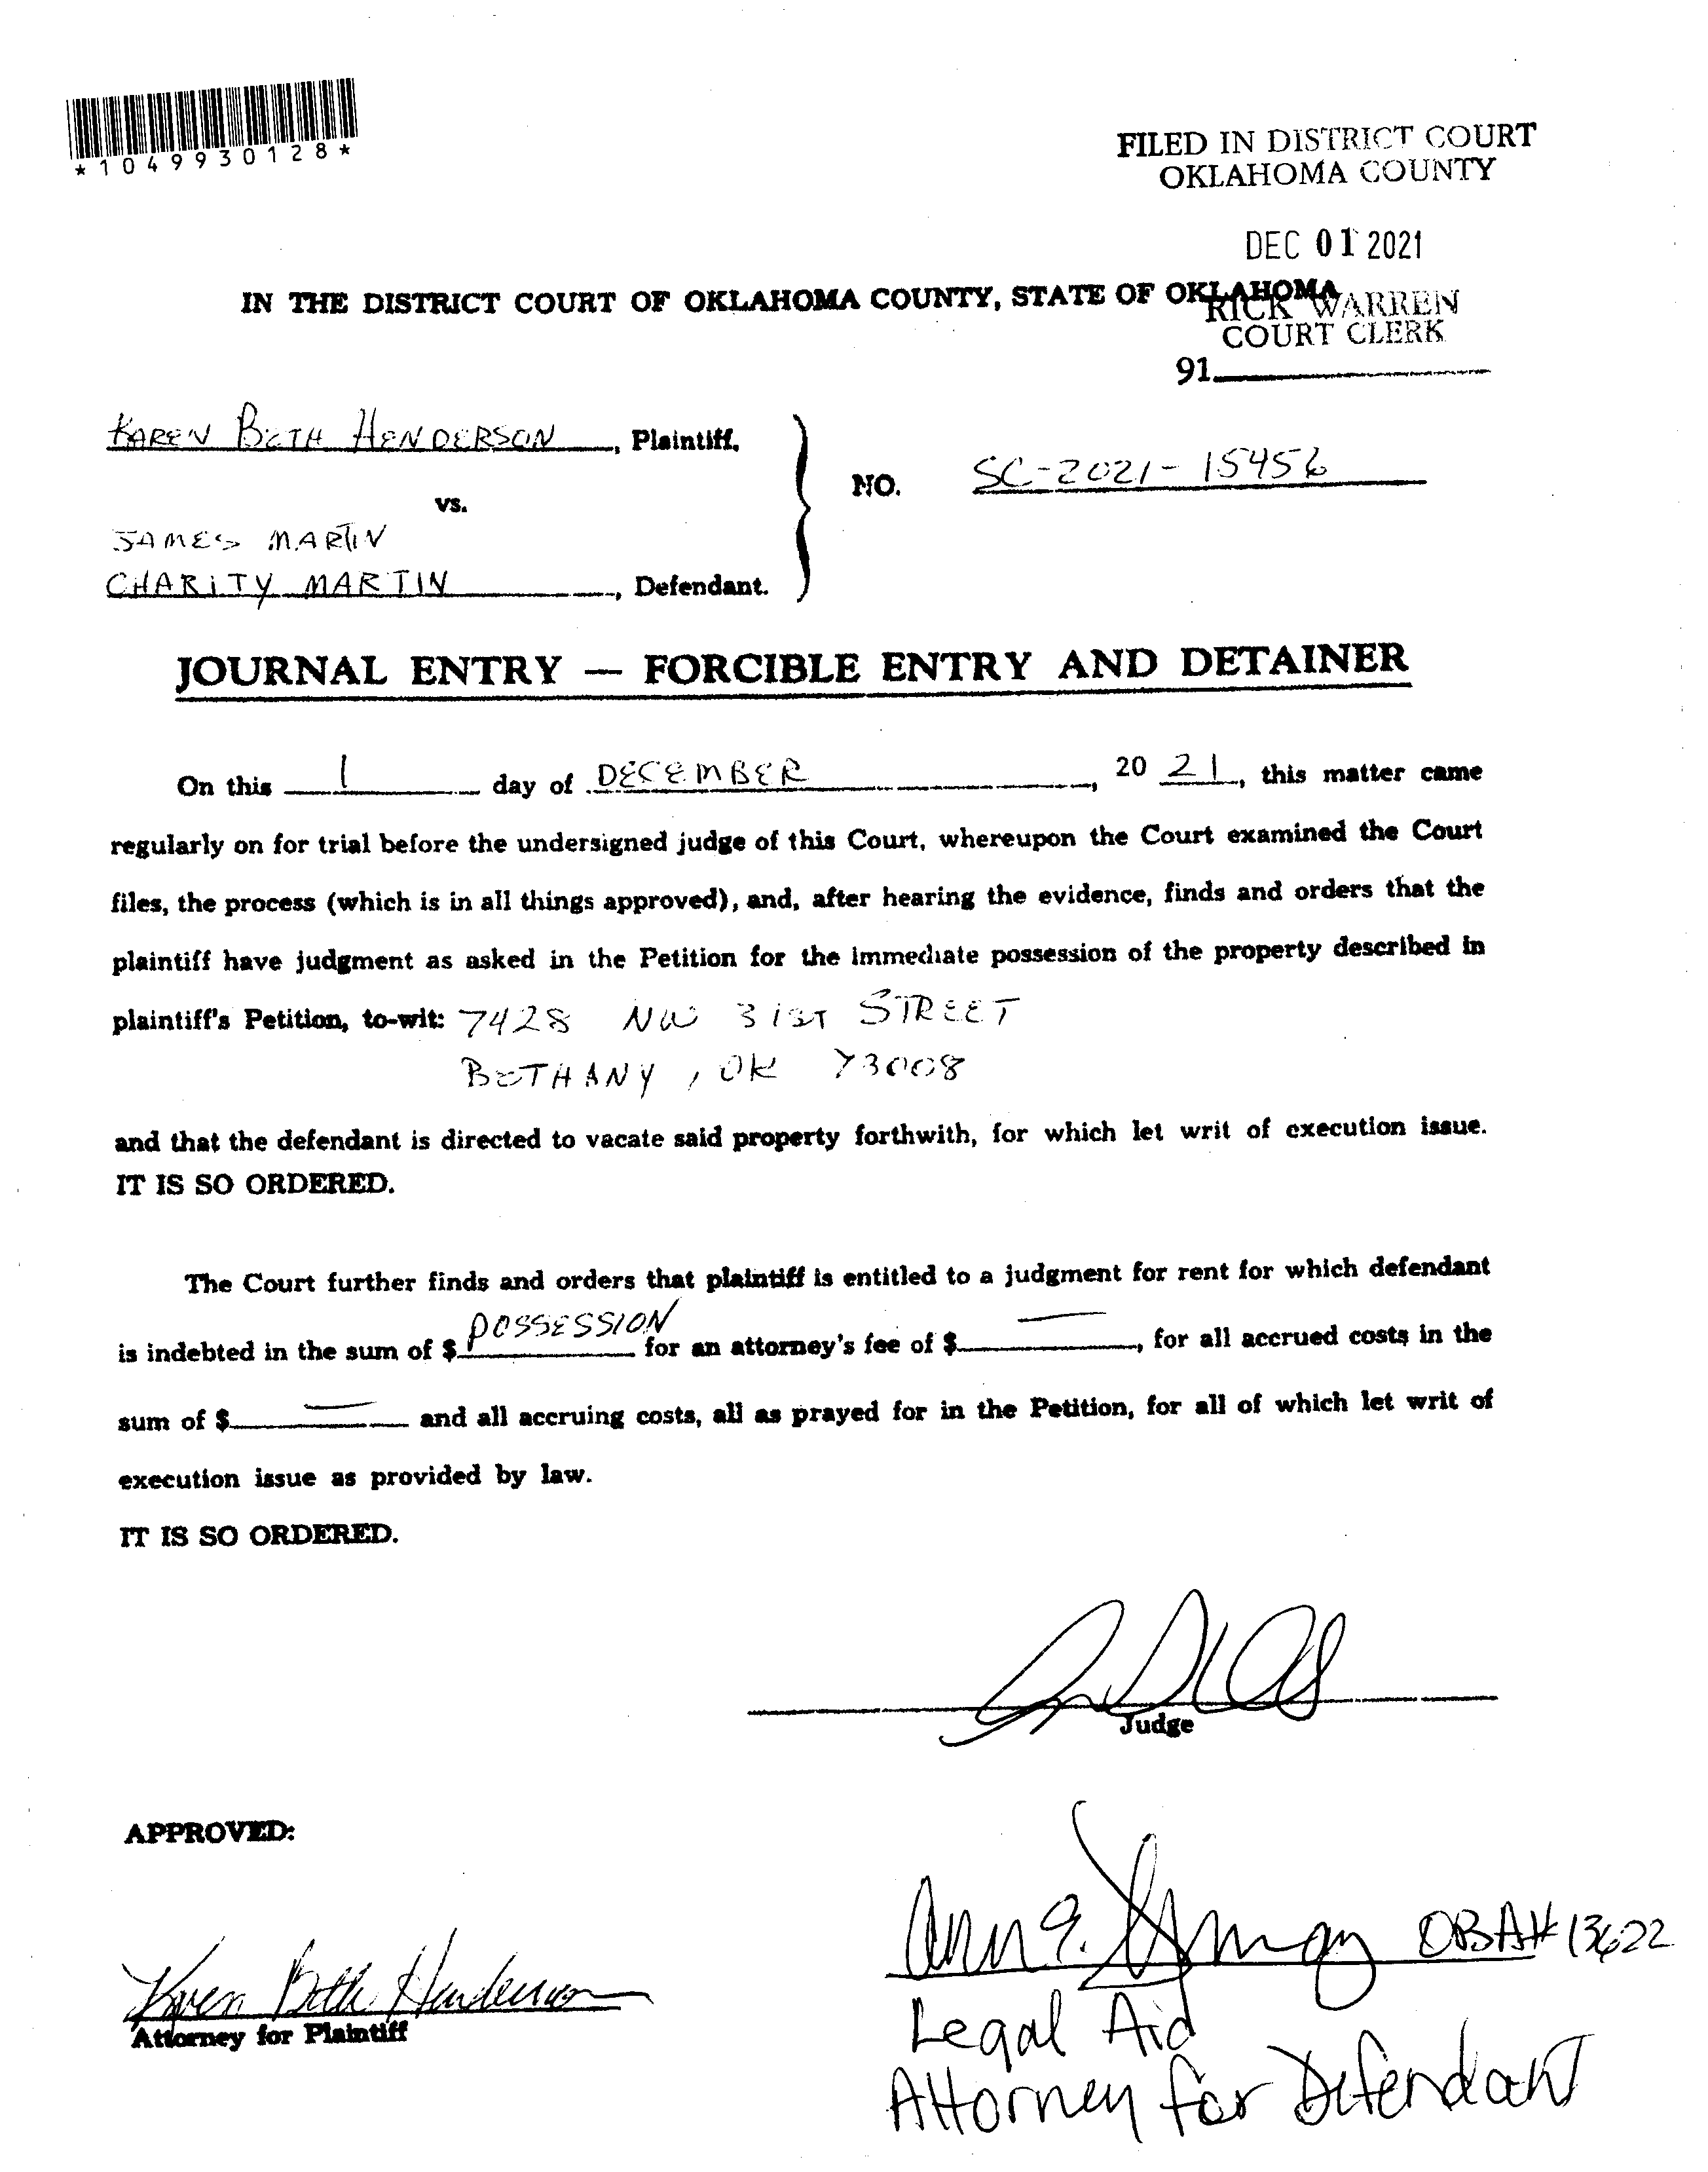 *1049930128*
FILED IN DISTRICT COURT
OKLAHOMA COUNTY
DEC 01 2021
IN THE DISTRICT COURT OF OKLAHOMA COUNTY, STATE OF OKLAHOMA
RICK WARREN
COURT CLERK
91
KAREN BETH HENDERSON, Plaintiff,
vs.
NO. SC-2021-15456
JAMES MARTIN
CHARITY MARTIN, Defendant.
JOURNAL ENTRY — FORCIBLE ENTRY AND DETAINER
On this 1 day of DECEMBER, 20 21, this matter came
regularly on for trial before the undersigned judge of this Court, whereupon the Court examined the Court
files, the process (which is in all things approved), and, after hearing the evidence, finds and orders that the
plaintiff have judgment as asked in the Petition for the immediate possession of the property described in
plaintiff's Petition, to-wit: 7428 NW 31ST STREET
BETHANY, OK 73008
and that the defendant is directed to vacate said property forthwith, for which let writ of execution issue.
IT IS SO ORDERED.
The Court further finds and orders that plaintiff is entitled to a judgment for rent for which defendant
is indebted in the sum of $ POSSESSION for an attorney's fee of $ —, for all accrued costs in the
sum of $ — and all accruing costs, all as prayed for in the Petition, for all of which let writ of
execution issue as provided by law.
IT IS SO ORDERED.
Judge
APPROVED:
Ann E. OBA# 13622
Karen Beth Henderson
Attorney for Plaintiff
Legal Aid
Attorney for Defendant